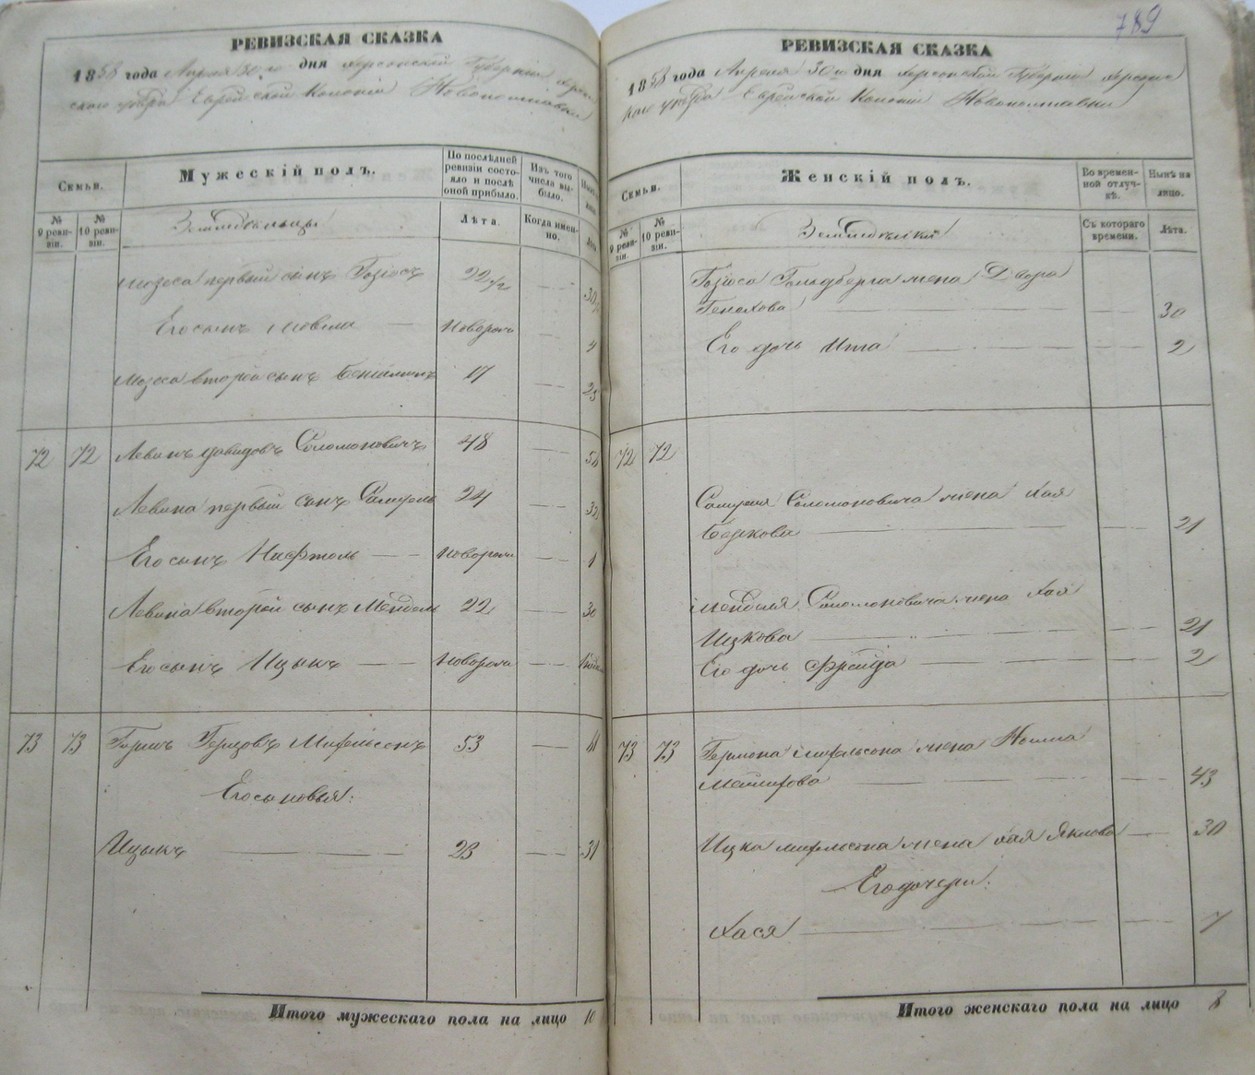 РЕВИЗСКАЯ СКАЗКА
1858 года Апреля 30го дня Херсонской Губернии Херсон
скаго уезда Еврейской Колонiи Новополтавки
Семьи.
Мужескiй полъ.
По последней
ревизiи состо-
яло и после
оной прибыло.
Изъ того
числа вы-
было.
№
9 реви-
зiи.
№
10 реви-
зiи.
Земледельцы
Лѣта.
Когда имен-
но.
Мозеса первый сынъ 22 1/2
Его сынъ новорож
Мозеса второй сынъ 17 25
72 72 Левинъ Давидовъ Соломоновичъ 48
Левина первый сынъ Самуель 24 32
Его сынъ Нафтоли новорож
Левина второй сынъ Мендель 22 30
Его сынъ Ицыкъ новорож
73 73 Герцовъ 53 61
Его сыновья:
Ицыкъ 23 31
Итого мужескаго пола на лицо 10
789
РЕВИЗСКАЯ СКАЗКА
1858 года Апреля 30го дня Херсонской Губернии Херсонс
каго уезда Еврейской Колонiи Новополтавки
Семьи.
Женскiй полъ.
Во времен-
ной отлуч-
кѣ.
Нынѣ на
лицо.
№
9 реви-
зiи.
№
10 реви-
зiи.
Земледелки
Съ котораго
времени.
Лѣта.
Гольдберга жена Двора
Генохова 30
Его дочь Ита 2
72 72
Самуеля Соломоновича жена Хая
Беркова 21
Менделя Соломоновича жена Хая
Ицкова 21
Его дочь Фрейда 2
73 73 жена
43
Ицка жена Хая Янкелева 30
Его дочери:
Хася 7
Итого женскаго пола на лицо 8